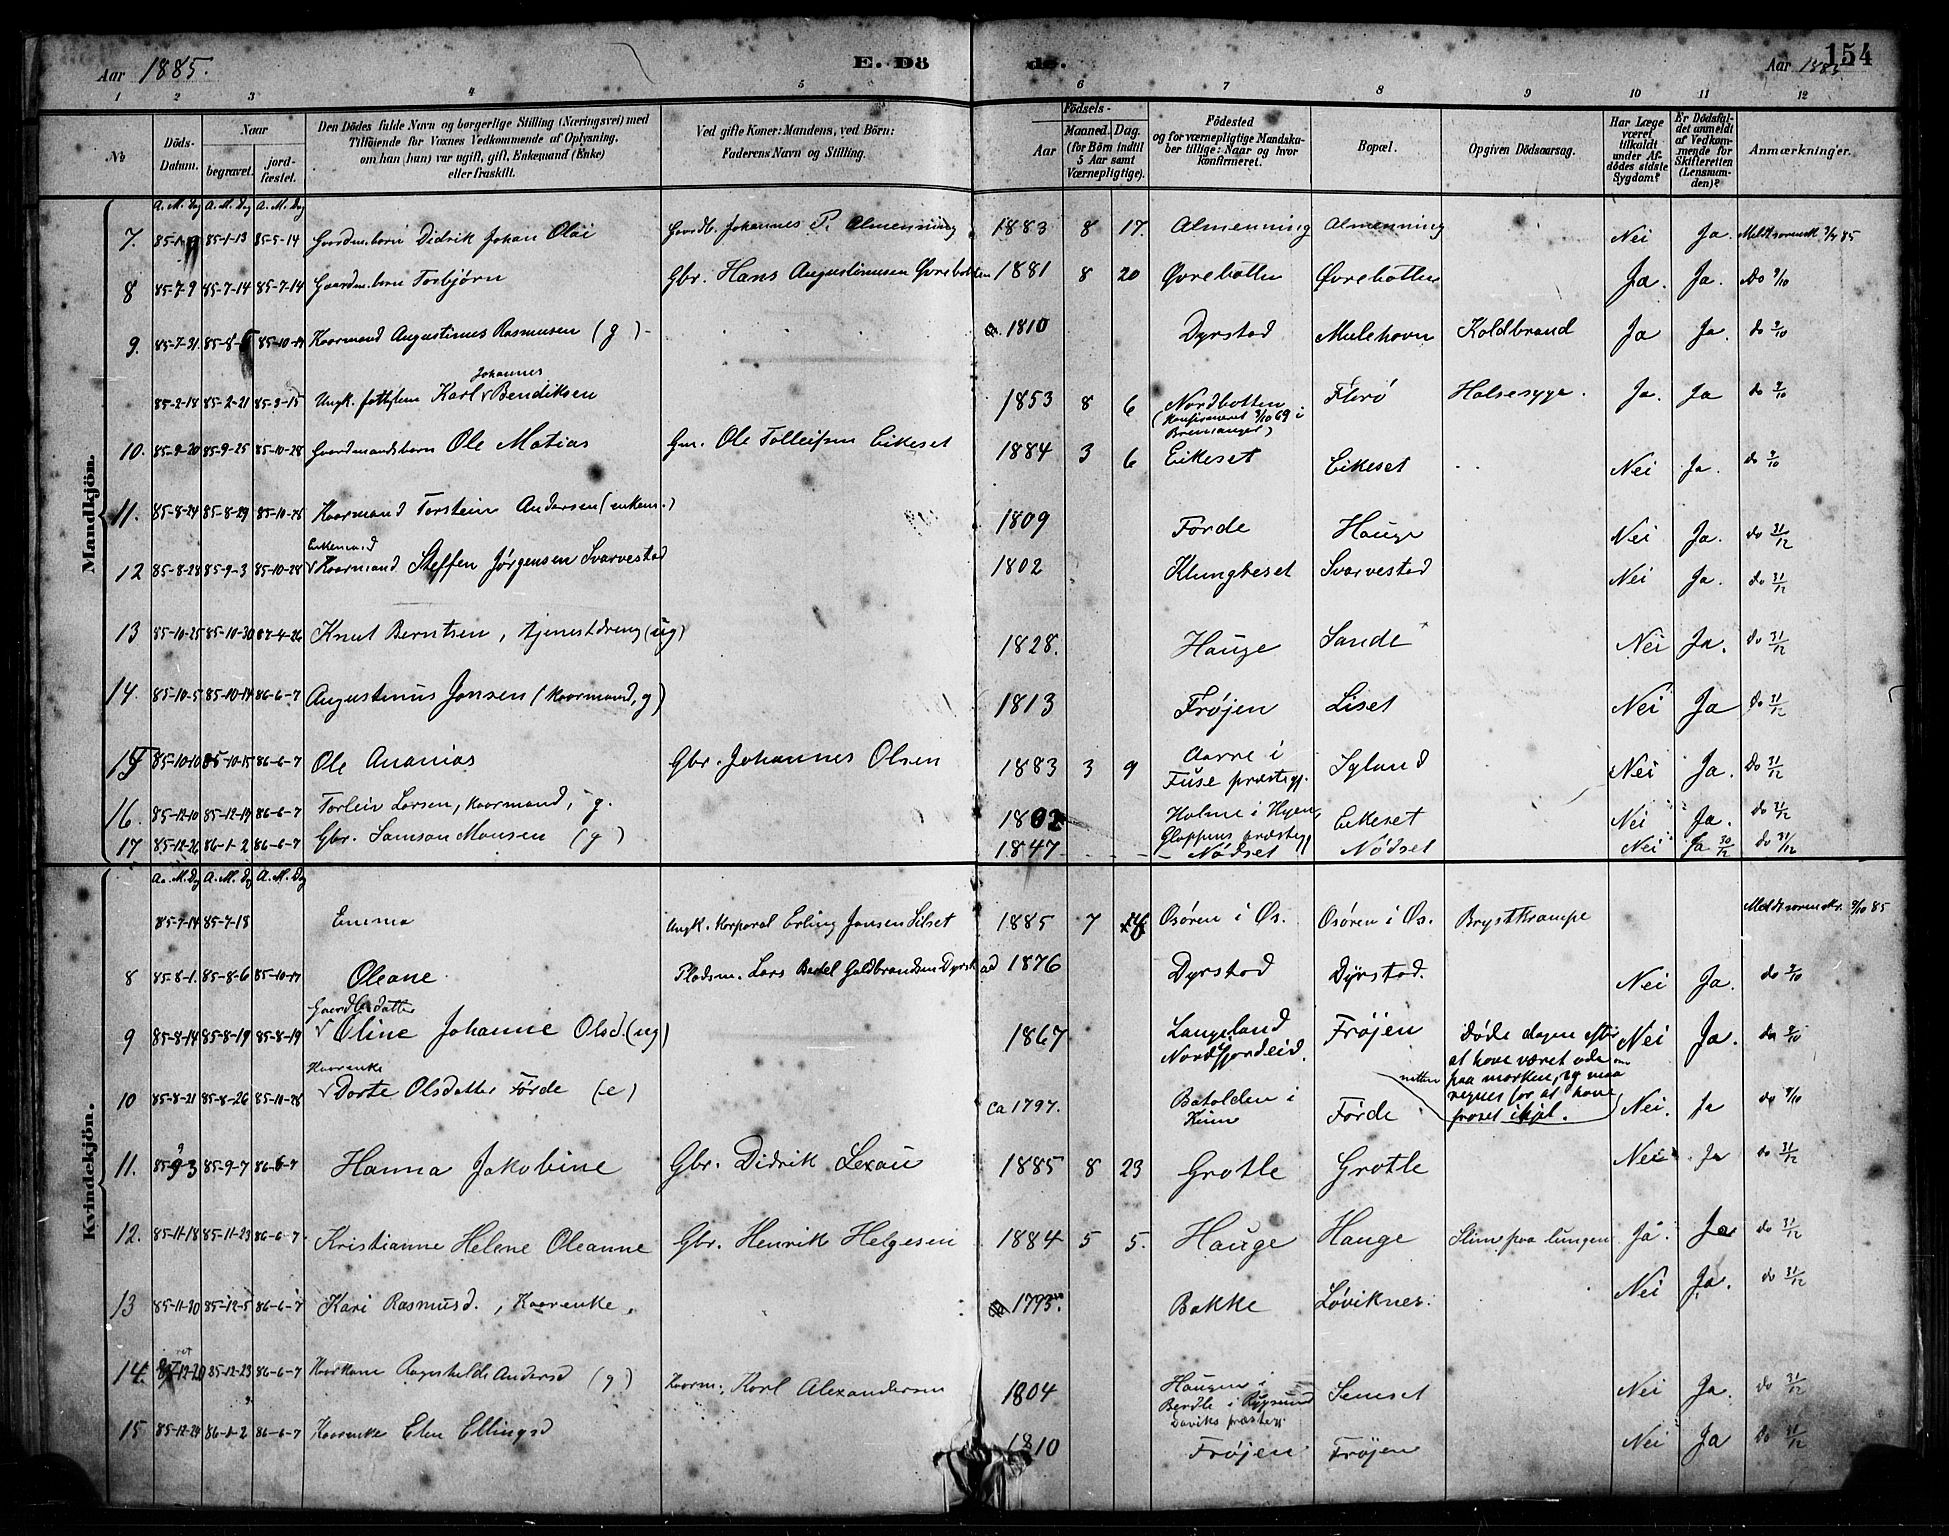 Aar 1885. E. Dö de. Aar 1885 154
1 2 3 4 5 6 7 8 9 10 11 12
No
Döds-Datum.
Naar
begravet.
jord-fæstet.
Den Dödes fulde Navn og borgerlige Stilling (Næringsvei) med
Tilföiende for Voxnes Vedkommende af Oplysning,
om han (hun) var ugift, gift, Enkemand (Enke)
eller fraskilt.
Ved gifte Koner: Mandens, ved Börn:
Faderens Navn og Stilling.
Födsels-
Aar
Maaned. Dag.
(for Börn indtil
5 Aar samt
Værnepligtige).
Födested
og for værnepligtige Mandska-
ber tillige: Naar og hvor
konfirmeret.
Bopæl.
Opgiven Dödsaarsag.
Har Læge
været
tilkaldt
under Af-
dödes sidste
Sygdom?
Er Dödsfal-
det anmeldt
af Vedkom-
mende for
Skifteretten
(Lensman-
den)?
Anmærkninger.
Mandkjön.
A. M. Dag A. M. Dag A. M. Dag
7. 85-1-13 85-5-14 Gaardm.born Didrik Johan Olai Gaardb. Johannes P. Almenning 1883 8 17. Almenning Almenning Nei Ja.
8 85-7-9 85-7-14 85-7-14 Gaardm.born Torbjørn Gbr. Hans Augustinusen Øvrebotten 1881 8 20 Øvrebotten Øvrebotten Ja. Ja. Do 9/10
9. 85-7-31 85-8-5 85-10-19 Kaarmand Augustinus Rasmusen (g) 1810 Dyrstad Mulehavn Koldbrand Ja Ja. do 9/10
Johannes
85-2-18 85-2-21 85-3-15 Ungk. Karl v Bendiksen 1853 8 6 Nordbotten Florø Halsesyge. Ja. Ja do 9/10
(Konfirmeret 3/10 69 i
Bremanger)
10. 85-9-20 85-9-25 85-10-28 Gaardmandsborn Ole Matias Gm. Ole Tolleifsen Eikeset 1884 3 6 Eikeset Eikeset Nei Ja. do 9/10
11. 85-8-24 85-8-29 85-10-28 Kaarmand Torstein Andersen (enkem.) 1809 Førde Hauge Nei Ja. do 31/12
Enkemand
12 85-8-28 85-9-3 85-10-28 v Kaarmand Steffen Jørgensen Svarvestad 1802 Klungreset Svarvestad Nei Ja. do 31/12
13 85-10-25 85-10-30 87-4-26 Knut Berntsen, tjenestdreng (ug) 1828. Hauge Sande Nei Ja. do 31/12
14. 85-10-5 85-10-14 86-6-7 Augustinus Jonsen (kaarmand, g) 1813 Frøjen Liset Nei Ja Do 31/12
15 85-10-10 85-10-15 86-6-7 Ole Ananias Gbr. Johannes Olsen 1883 3 9 Aarre i Sglund Nei Ja. Do 31/12
Fuse præstegj.
16. 85-12-10 85-12-19 86-6-7 Torleiv Larsen, kaarmand, g. 1802 Holme i Hyen, Eikeset Nei Ja. do 31/12
Gloppens præstegj
17 85-12-26 86-1-2 86-6-7 Gbr. Samson Monsen (g) 1847 Nødset Nødset Nei Ja 30/12 do 31/12
Kvindekjön.
Aa. M. Dg A. M. Dg A. M. Dg
85-7-14 85-7-18 Emma Ungk. Korporal Erling Jansen Liset 1885 7 Osøren i Os. Osøren i Os. Brystkrampe 9/10 85
8 85-8-1. 85-8-6 85-10-19 Oleane Pladsm. Lars Bertel Guldbrandsen Dyrstad 1876 Dyrstad Dyrstad. Nei Ja. do 9/10
Gaardb.datter
9 85-8-14 85-8-19 85-8-19 v Oline Johanne Olsd. (ug) 1867 Langeland Frøjen Døde dagen efter Nei Ja. do 9/10
Nordfjordeid. at have været ude om
natten paa marken, og maa
regnes for at have
frøset ihjel.
Kaarenke
10 85-8-21 85-8-26 85-10-28 v Dorte Olsdatter Førde (e) ca 1797. Batalden i Førde Nei. Ja do 9/10
Kinn
11. 85-9-3 85-9-7 86-6-7 Hanna Jakobine Gbr. Didrik Lexau 1885 8 23 Grotle Grotle Nei Ja do 31/12
12. 85-11-18 85-11-23 86-6-7 Kristianne Helene Oleanne Gbr. Henrik Helgesen 1884 5 5. Hauge Hauge Slim paa lungen Ja. Ja do 31/12
13 85-11-30 85-12-5 86-6-7 Kari Rasmusd., Kaarenke, 1793. Bakke Løviknes. Nei Ja. do 31/12
14. 85-12-20 85-12-23 86-6-7 Kaarkone Ragnhilde Andersd (g) Kaarm. Karl Alexandersen 1804 Haugen i Semset Nei Ja. do 31/12
Berdle i Rugsund
Daviks præstegj.
15 85-12-29 86-1-2 86-6-7 Kaarenke Elen Ellingsd 1810 Frøjen Frøjen Nei Ja Do 31/12